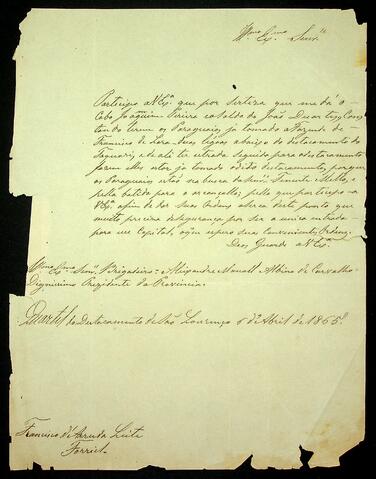 Illmo. Exmo. Senr.
Participo a V. Exa. que por serteza que me dá o
Cabo Joaquim Pereira e o Soldado João Duarte, Cons
tando terem os Paraguaios já tomado a Fazenda de
Francisco de duas legoas abaixo do destacamento do
Taquari, e de ali ter estrada seguida para o destacamento
já tomado o dito destacamento, porque
os Paraguaios estão em busca do Tenente Mello, e
pella batida para o pello que participo a
V. Exa. afim de dar suas Ordens aserca deste ponto que
muito precisa de segurança por ser a unica estrada
para a Capital, e aqui espero suas convenientes Ordens.
Deos Guarde a V. Exa.
Illmo. Exmo. Senr. Brigadeiro Alexandre Manoel Albino de Carvalho
Dignissimo Prezidente da Provincia.
Quartel do Destacamento de São Lourenço 6 de Abril de 1865.
Francisco d'Arruda Leite
Forriel